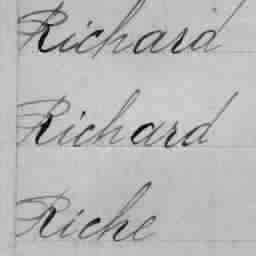 Richard
Richard
Riche